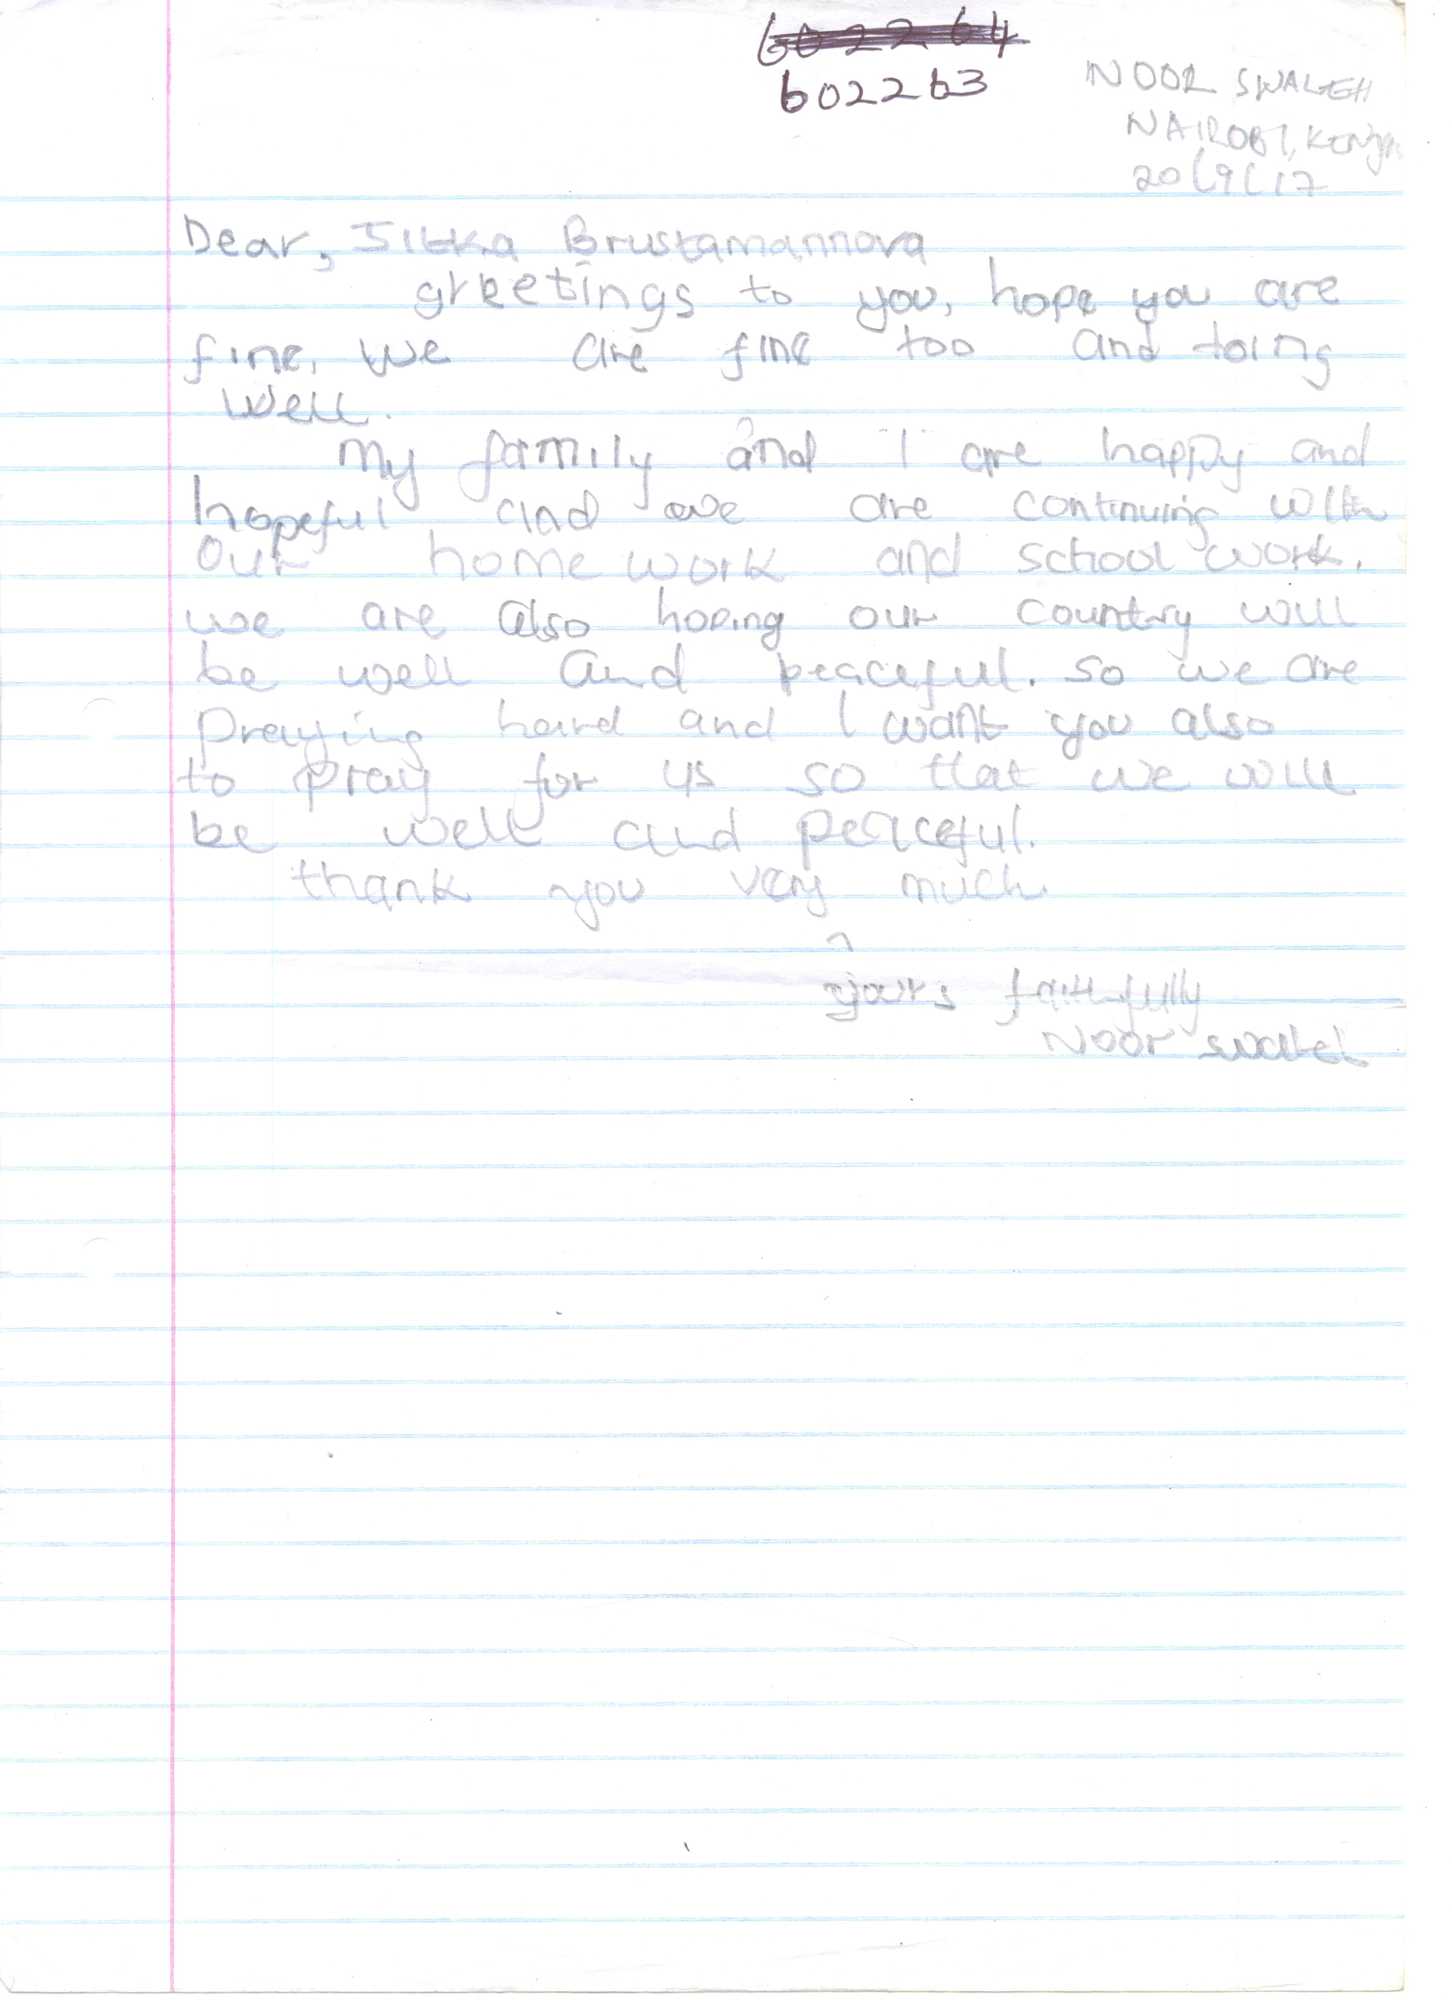 602264
602263
NOOR SWALEH
NAIROBI, KENYA
20/9/17
Dear, Jitka Brustamannova
greetings to you, hope you are
fine, we are fine too and toing
well.
My family and I are happy and
hopeful and we are continuing with
our home work and school work.
we are also hoping our country will
be well and peaceful. so we are
praying hard and I want you also
to pray for us so that we will
be well and peaceful.
thank you very much
yours faithfully
Noor swaleh